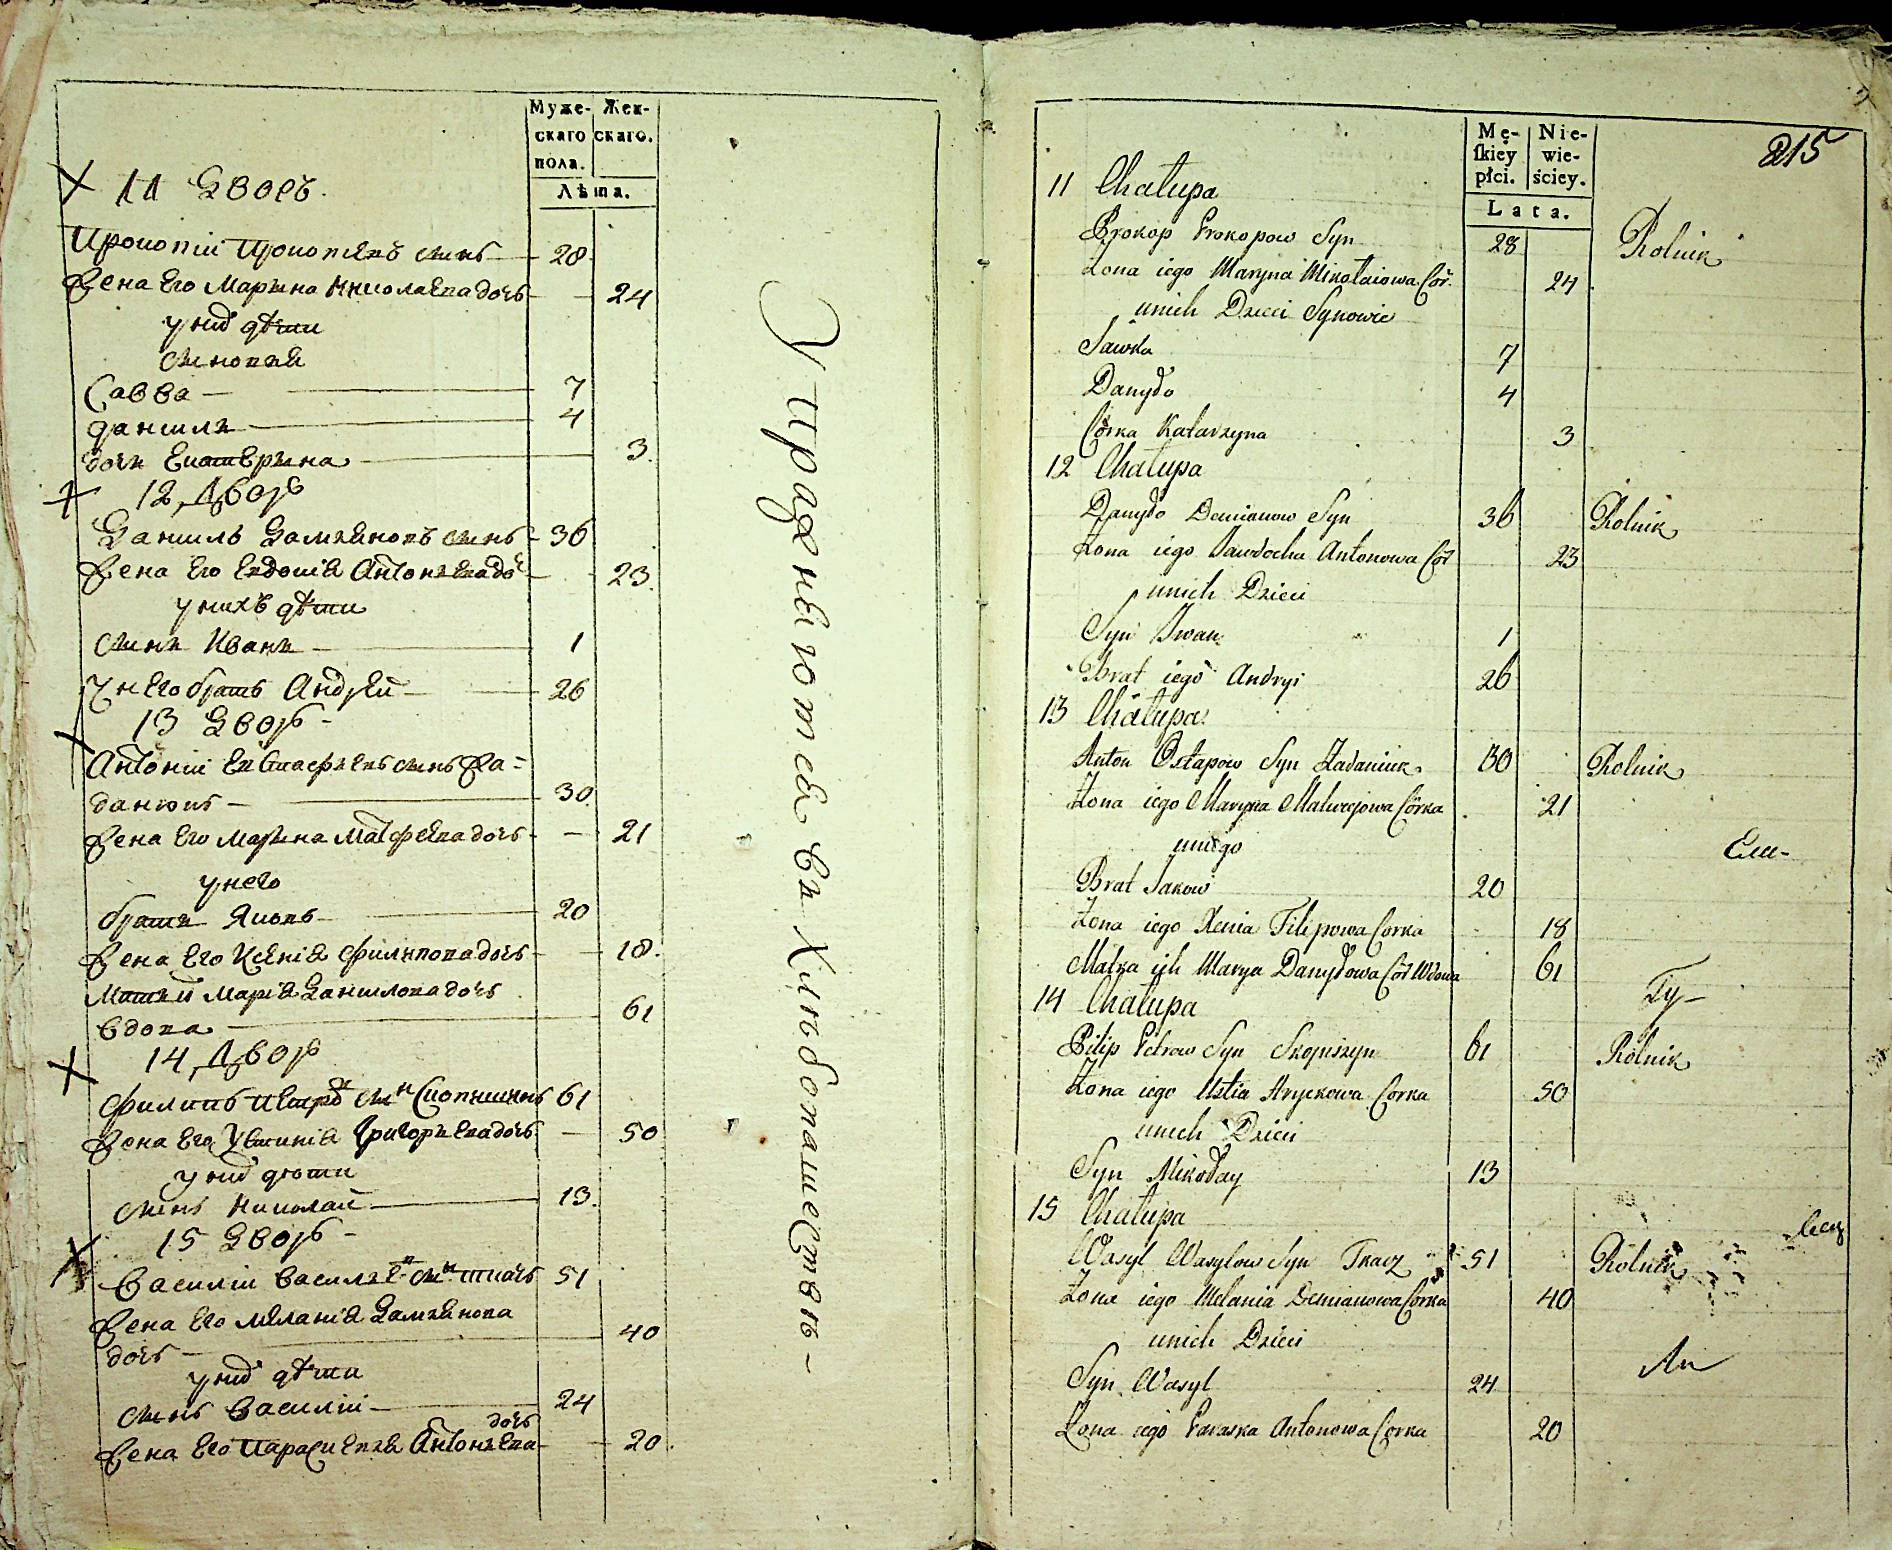 Муже-
скаго
пола.
Жен-
скаго.
Лѣта.
11 Дворъ.
Прокопій Прокопіевъ сынъ 28
Жена Его Марына Николаева дочь 24
у нид дѣти
сыновья
Савва 7
данила 4
дочь Екатерына 3
12 Двор
Данилъ Дамяновъ сынъ 36
Жена Его Евдокія Антонева до 23
у нихъ дѣти
сынъ Иванъ 1
У нЕго братъ Андрей 26
13 Двор
Антоній Евстафьевъ сынъ Жа=
данюкъ 30
Жена Его Марына Матфеева дочь 21
у него
братъ Яковъ 20
Жена Его Ксенія Филипова дочь 18
Матей Марія Данилова дочь
вдова 61
14 Двор
Филипъ Петро сын Скопишинъ 61
Жена Его Устинія Григорьева дочь 50
у нид дѣти
сынъ Николай 13
15 Двор
Василій Васильев сын ткачъ 51
Жена Его Меланія Дамянова
дочь 40
у нид дѣти
сынъ Василій 24
дочь
Жена Его Парасцевья Антонева 20
Упражняются въ Хлѣбопашествѣ
Mę-
skiey
płci.
Nie-
wie-
ściey.
Lata.
215
11 Chałupa
Prokop Prokopow Syn 28 Rolnik
Żona iego Maryna Mikołaiowa Cór. 24
unich Dzieci Synowie
Sawka 7
Danyło 4
Córka Katarzyna 3
12 Chałupa
Danyło Demianow Syn 36 Rolnik
Żona iego Jawdocha Antonowa Cór 23
unich Dzieci
Syn Iwan 1
Brat iego Andryi 26
13 Chałupa
Anton Ostapow Syn Żadaniuk 30 Rolnik
Żona iego Maryna Matwejowa Córka 21
uniego
Ели-
Brat Jakow 20
Żona iego Xenia Filipowa Corka 18
Matka ich Marya Danyłowa Cór Wdowa 61
Гу-
14 Chałupa
Pilip Petrow Syn Skopiszyn 61 Rolnik
Żona iego Ustia Hryckowa Corka 50
unich Dzieci
Syn Mikołay 13
15 Chałupa
Wasyl Wasylow Syn Tkacz 51 Rolnik
Żona iego Melania Demianowa Córka 40
unich Dzieci
Syn Wasyl 24
Żona iego Paraska Antonowa Corka 20